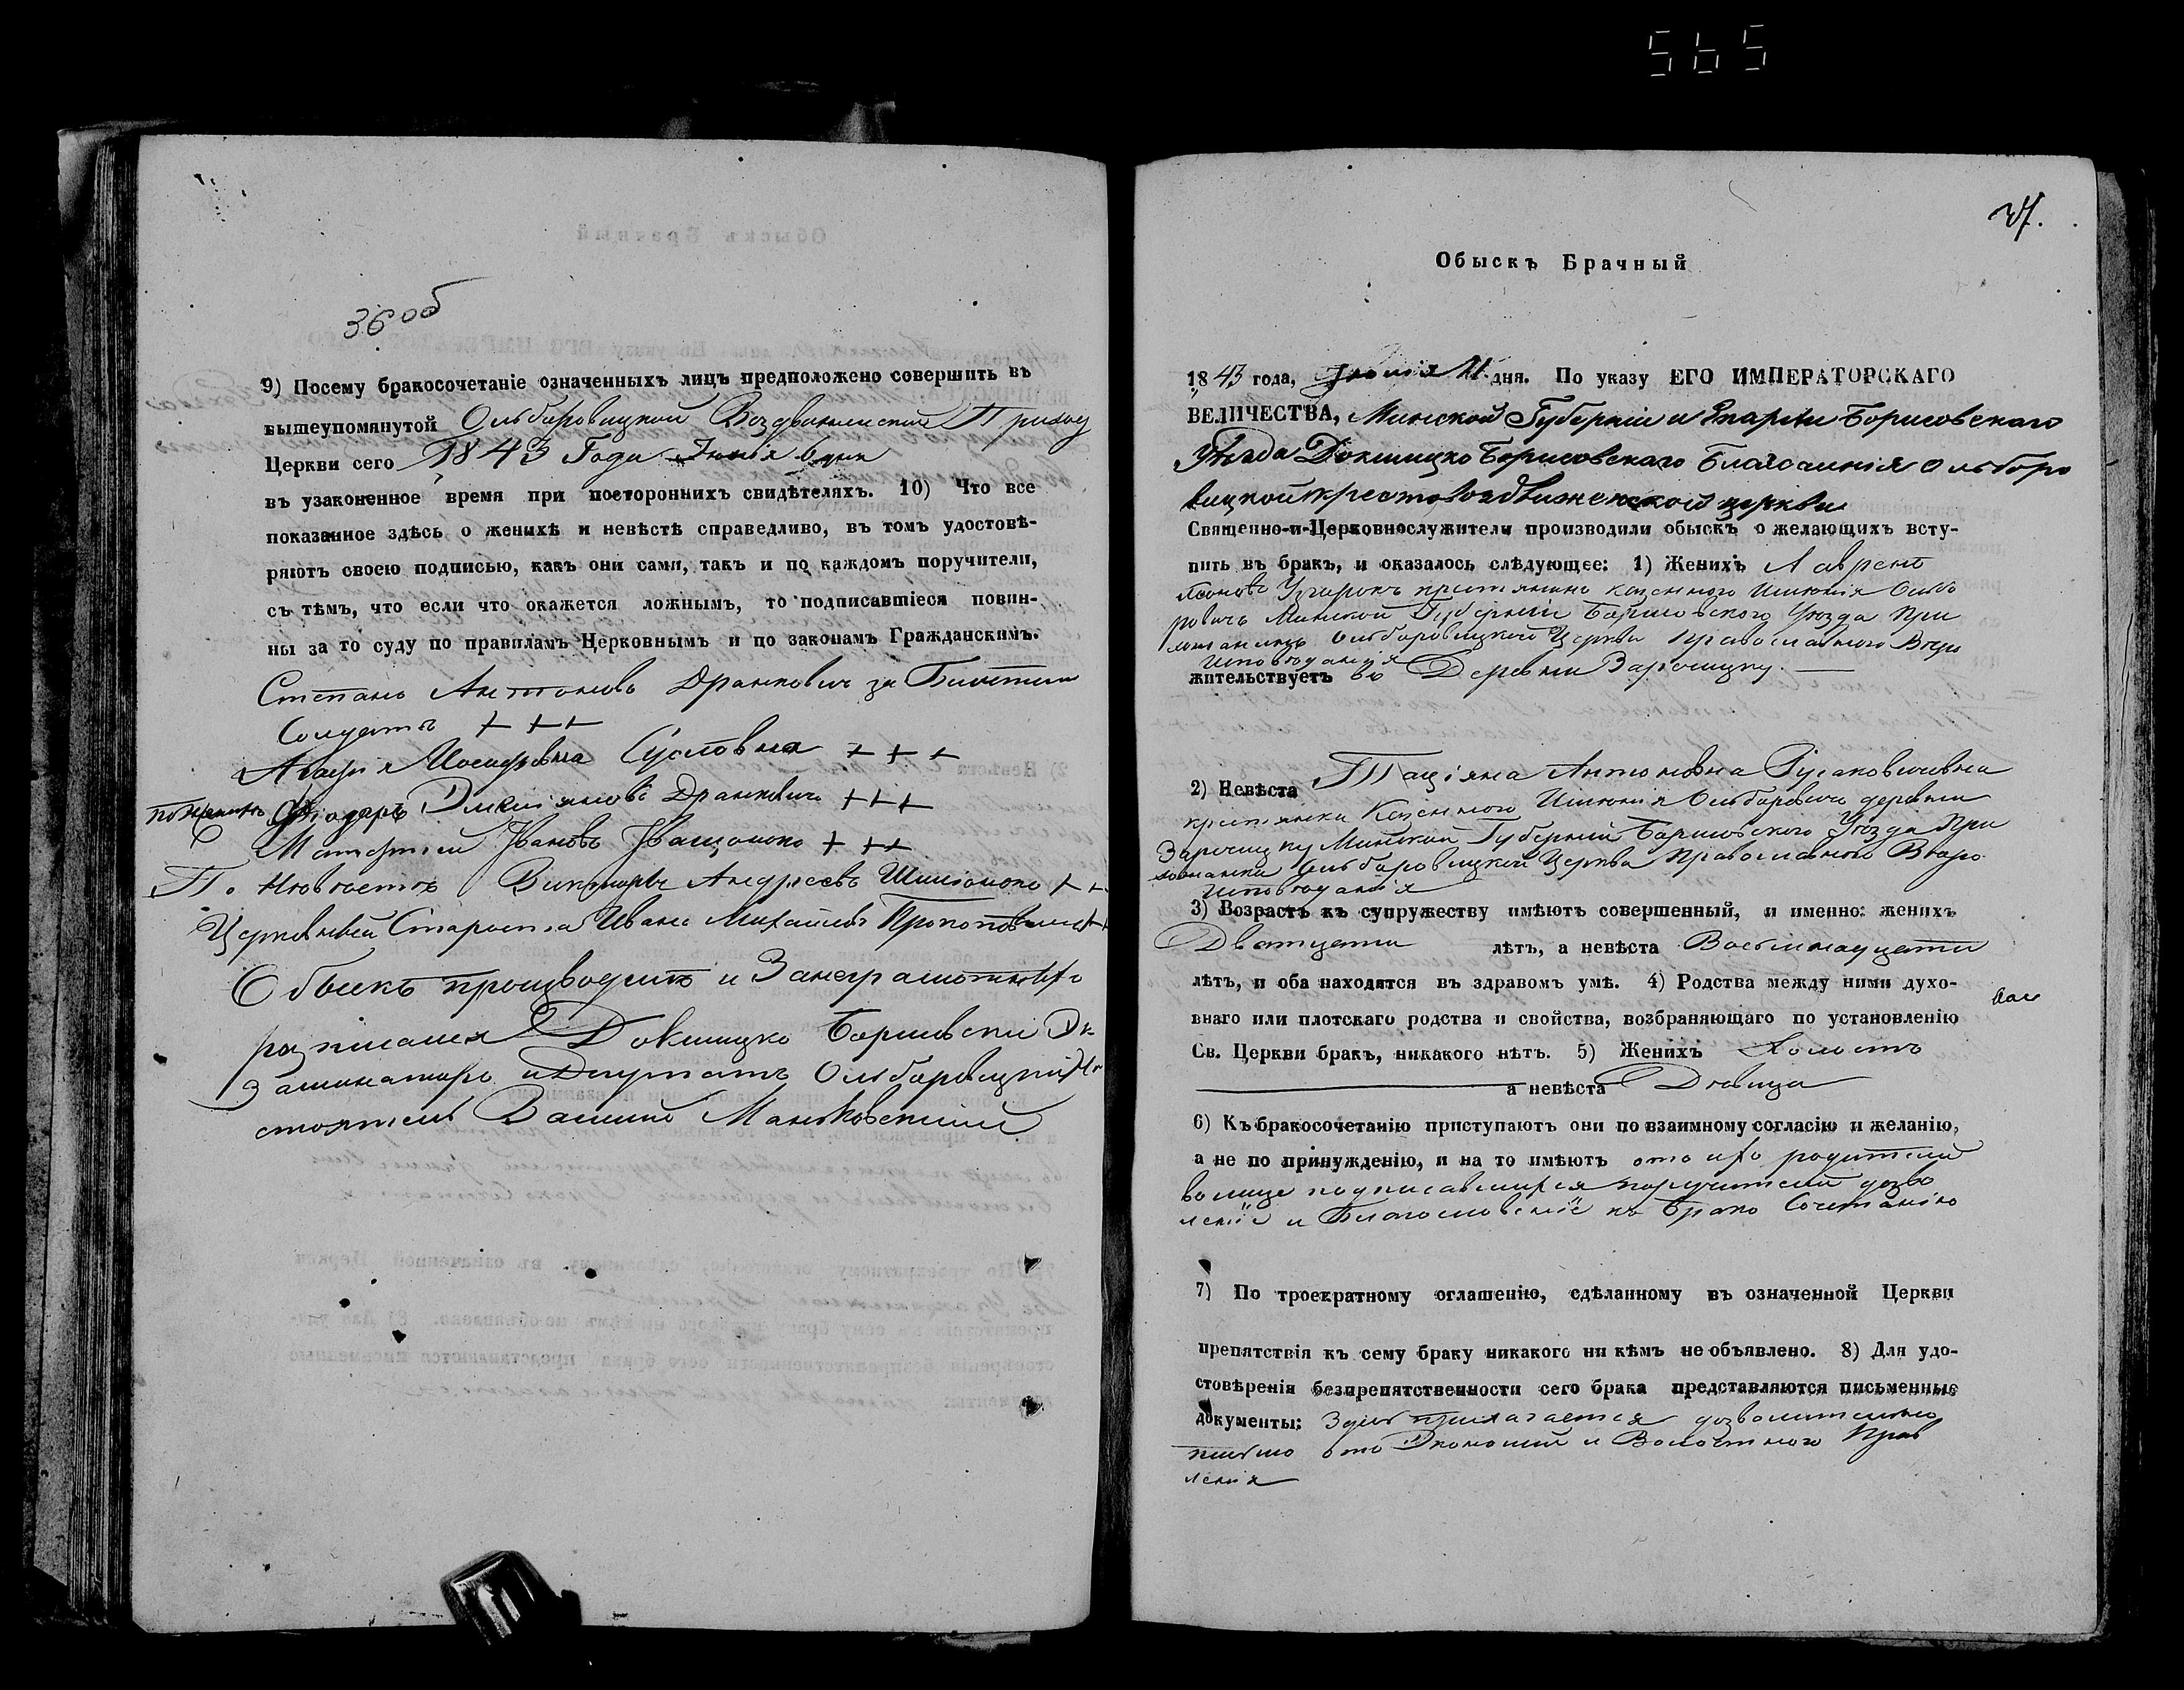 565
36 об
9) Посему бракосочетаніе означенныхъ лицъ предположено совершить въ
вышеупомянутой Ольборовицкой Воздвиженской Приход
Церкви сего 1843 Года Іюнія 6 дня
въ узаконенное время при постороннихъ свидѣтеляхъ. 10) Что все
показанное здѣсь о женихѣ и невѣстѣ справедливо, въ томъ удостовѣ-
ряютъ своею подписью, какъ они сами, такъ и по каждомъ поручители,
съ тѣмъ, что если что окажется ложнымъ, то подписавшіеся повин-
ны за то суду по правиламъ Церковнымъ и по законамъ Гражданскимъ.
Степанъ Антоновъ Дранкович
Солдатъ + + +
Агафія Іосифовна +++
Ѳіодоръ Дранкевич +++
Иванов +++
По Невѣстѣ Викторъ Андреевъ Шишонокъ ++
Церковный Староста Иванъ Михайловъ
Обыскъ производилъ и За неграмотныхъ
росписался Докшицко Борисовскій Эк
заминаторъ и Депутатъ Ольборовицкій На
стоятель Маньковскій
Обыскъ Брачный
1843 года, Іюнія 11 дня. По указу ЕГО ИМПЕРАТОРСКАГО
ВЕЛИЧЕСТВА, Минской Губерніи и Епархіи Борисовскаго
Уѣзда Докшицко Борисовскаго Благочинія Ольборо
вицкой Крестовоздвиженской церкви
Священно-и-Церковнослужители производили обыскъ о желающихъ всту-
пить въ бракъ, и оказалось слѣдующее: 1) Женихъ Лаврент
крестьянинъ казенного Имѣнія Ольбо
ровичъ Минской Губерніи Борисовского Уѣзда При
хожанинъ Ольборовицкой Церкви Православного Вѣро
Исповѣданія
жительствуетъ въ Деревни Заречицку.
2) Невѣста Таціяна Антоновна Русаковичевна
крестьянка Казенного Имѣнія Ольборович деревни
Заречицку Минской Губерніи Борисовского Уѣзда При
хожанка Ольборовицкой Церкви Православного Вѣро
Исповѣданія
3) Возрастъ къ супружеству имѣютъ совершенный, и именно: женихъ
Дватцати лѣтъ, а невѣста Восьмнадцати
лѣтъ, и оба находятся въ здравомъ умѣ. 4) Родства между ними духо-
внаго или плотскаго родства и свойства, возбраняющаго по установленію
Св. Церкви бракъ, никакого нѣтъ. 5) Женихъ Холостъ
а невѣста Дѣвица
6) Къ бракосочетанію приступаютъ они по взаимному согласію и желанію,
а не по принужденію, и на то имѣютъ отъ ихъ родителей
во лице подписавшихся поручителей дозво
леніе и Благословеніе къ Брако Сочетанію
7) По троекратному оглашенію, сдѣланному въ означенной Церкви
препятствія къ сему браку никакого ни кѣмъ не объявлено. 8) Для удо-
стовѣренія безпрепятственности сего брака представляются письменные
документы: Здѣсь прилагается дозволительно
письмо отъ Экономіи и Волостного Прав
ленія